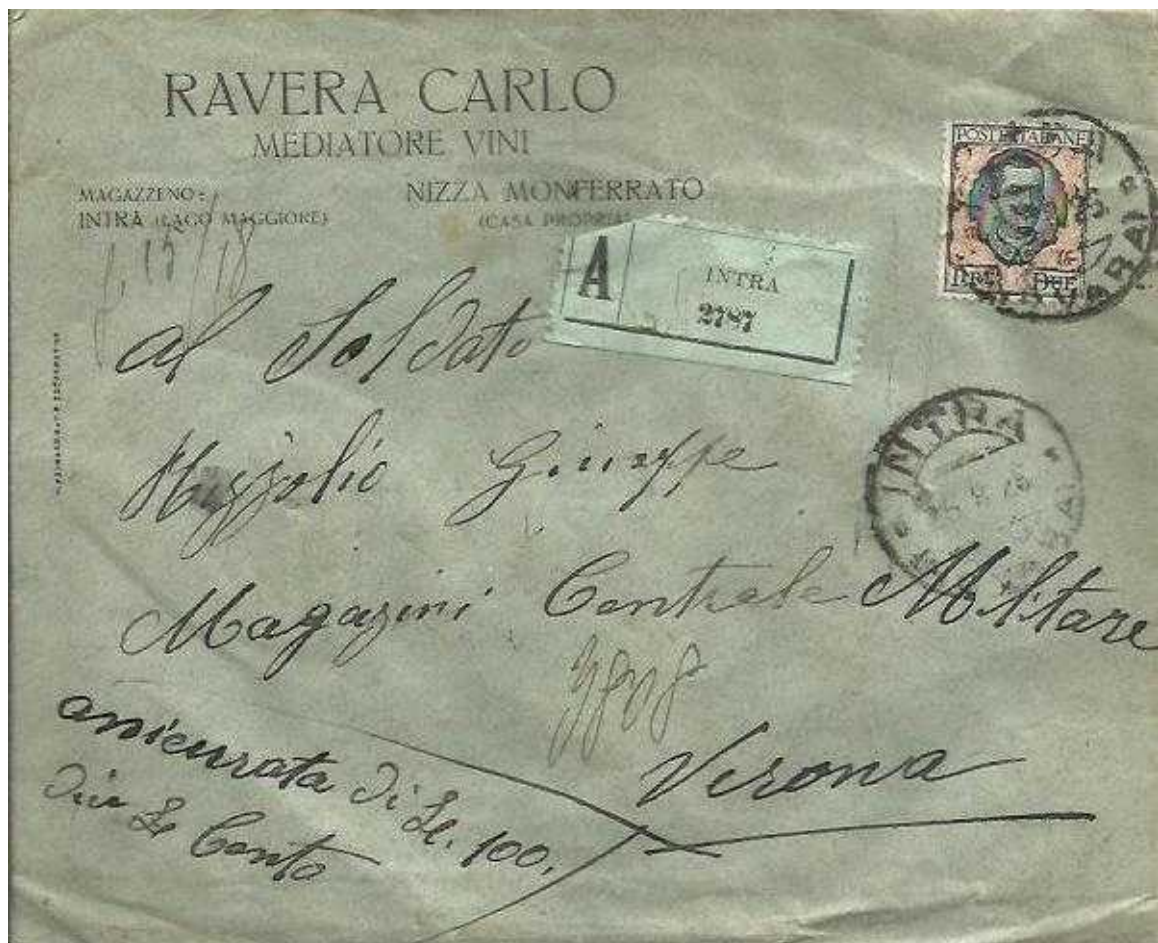 RAVERA CARLO
MEDIATORE VINI
MAGAZZENO:
INTRA (LAGO MAGGIORE)
NIZZA MONFERRATO
(CASA PROPRIA)
POSTE ITALIANE
LIRE DUE
A
INTRA
2787
al Soldato
Giuseppe
INTRA
Magazini Centrale Militare
Verona
assicurata di Le. 100,
dico Le Cento